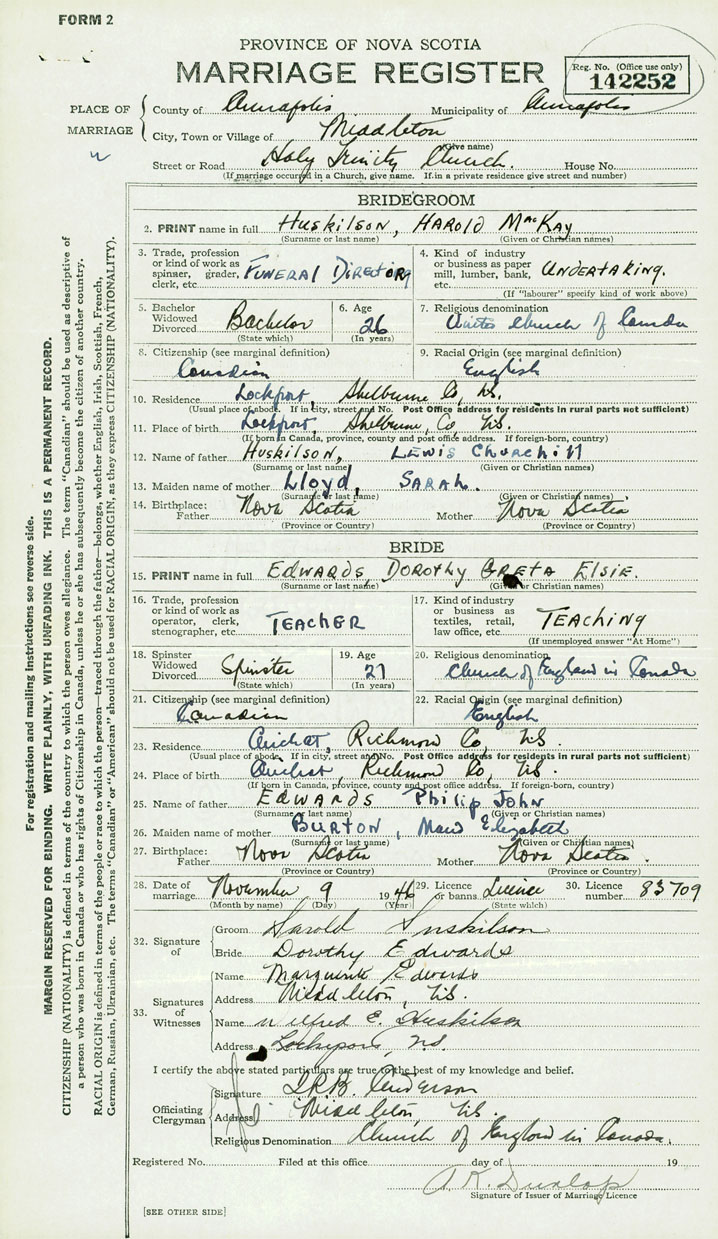 FORM 2
PROVINCE OF NOVA SCOTIA
MARRIAGE REGISTER
Reg. No. (Office use only)
142252
PLACE OF MARRIAGE
County of Annapolis Municipality of Annapolis
City, Town or Village of Middleton
(Give name)
Street or Road Holy Trinity Church. House No.
(If marriage occurred in a Church, give name. If in a private residence give street and number)
BRIDEGROOM
2. PRINT name in full HUSKILSON, HAROLD MacKay
(Surname or last name) (Given or Christian names)
3. Trade, profession or kind of work as spinner, grader, clerk, etc. FUNERAL DIRECTOR
4. Kind of industry or business as paper mill, lumber, bank, etc. UNDERTAKING.
(If "labourer" specify kind of work above)
5. Bachelor Widowed Divorced Bachelor
(State which)
6. Age 26
(In years)
7. Religious denomination United Church of Canada
8. Citizenship (see marginal definition) Canadian
9. Racial Origin (see marginal definition) English
10. Residence Lockport, Shelburne Co, N.S.
(Usual place of abode. If in city, street and No. Post Office address for residents in rural parts not sufficient)
11. Place of birth Lockport, Shelburne, Co, N.S.
(If born in Canada, province, county and post office address. If foreign-born, country)
12. Name of father Huskilson, LEWIS CHURCHill
(Surname or last name) (Given or Christian names)
13. Maiden name of mother Lloyd, SARAH.
(Surname or last name) (Given or Christian names)
14. Birthplace: Father Nova Scotia Mother Nova Scotia
(Province or Country) (Province or Country)
BRIDE
15. PRINT name in full EDWARDS, DOROTHY GRETA ELSIE.
(Surname or last name) (Given or Christian names)
16. Trade, profession or kind of work as operator, clerk, stenographer, etc. TEACHER
17. Kind of industry or business as textiles, retail, law office, etc. TEACHING
(If unemployed answer "At Home")
18. Spinster Widowed Divorced Spinster
(State which)
19. Age 27
(In years)
20. Religious denomination Church of England in Canada
21. Citizenship (see marginal definition) Canadian
22. Racial Origin (see marginal definition) English
23. Residence Arichat, Richmond Co, N.S.
(Usual place of abode. If in city, street and No. Post Office address for residents in rural parts not sufficient)
24. Place of birth Arichat, Richmond Co, N.S.
(If born in Canada, province, county and post office address. If foreign-born, country)
25. Name of father EDWARDS Philip John
(Surname or last name) (Given or Christian names)
26. Maiden name of mother BURTON, Maud Elizabeth
(Surname or last name) (Given or Christian names)
27. Birthplace: Father Nova Scotia Mother Nova Scotia.
(Province or Country) (Province or Country)
28. Date of marriage November 9 1946
(Month by name) (Day) (Year)
29. Licence or banns Licence
(State which)
30. Licence number 83709
32. Signature of
Groom Harold Huskilson
Bride Dorothy Edwards
33. Signatures of Witnesses
Name Marguerite Edwards
Address Middleton, N.S.
Name Wilfred E. Huskilson
Address Lockeport, N.S.
I certify the above stated particulars are true to the best of my knowledge and belief.
Officiating Clergyman
Signature Anderson
Address Middleton, N.S.
Religious Denomination Church of England in Canada.
Registered No. Filed at this office day of 19
Dunlop
Signature of Issuer of Marriage Licence
[SEE OTHER SIDE]
For registration and mailing instructions see reverse side.
MARGIN RESERVED FOR BINDING. WRITE PLAINLY, WITH UNFADING INK. THIS IS A PERMANENT RECORD.
CITIZENSHIP (NATIONALITY) is defined in terms of the country to which the person owes allegiance. The term "Canadian" should be used as descriptive of
a person who was born in Canada or who has rights of Citizenship in Canada, unless he or she has subsequently become the citizen of another country.
RACIAL ORIGIN is defined in terms of the people or race to which the person—traced through the father—belongs, whether English, Irish, Scottish, French,
German, Russian, Ukrainian, etc. The terms "Canadian" or "American" should not be used for RACIAL ORIGIN, as they express CITIZENSHIP (NATIONALITY).